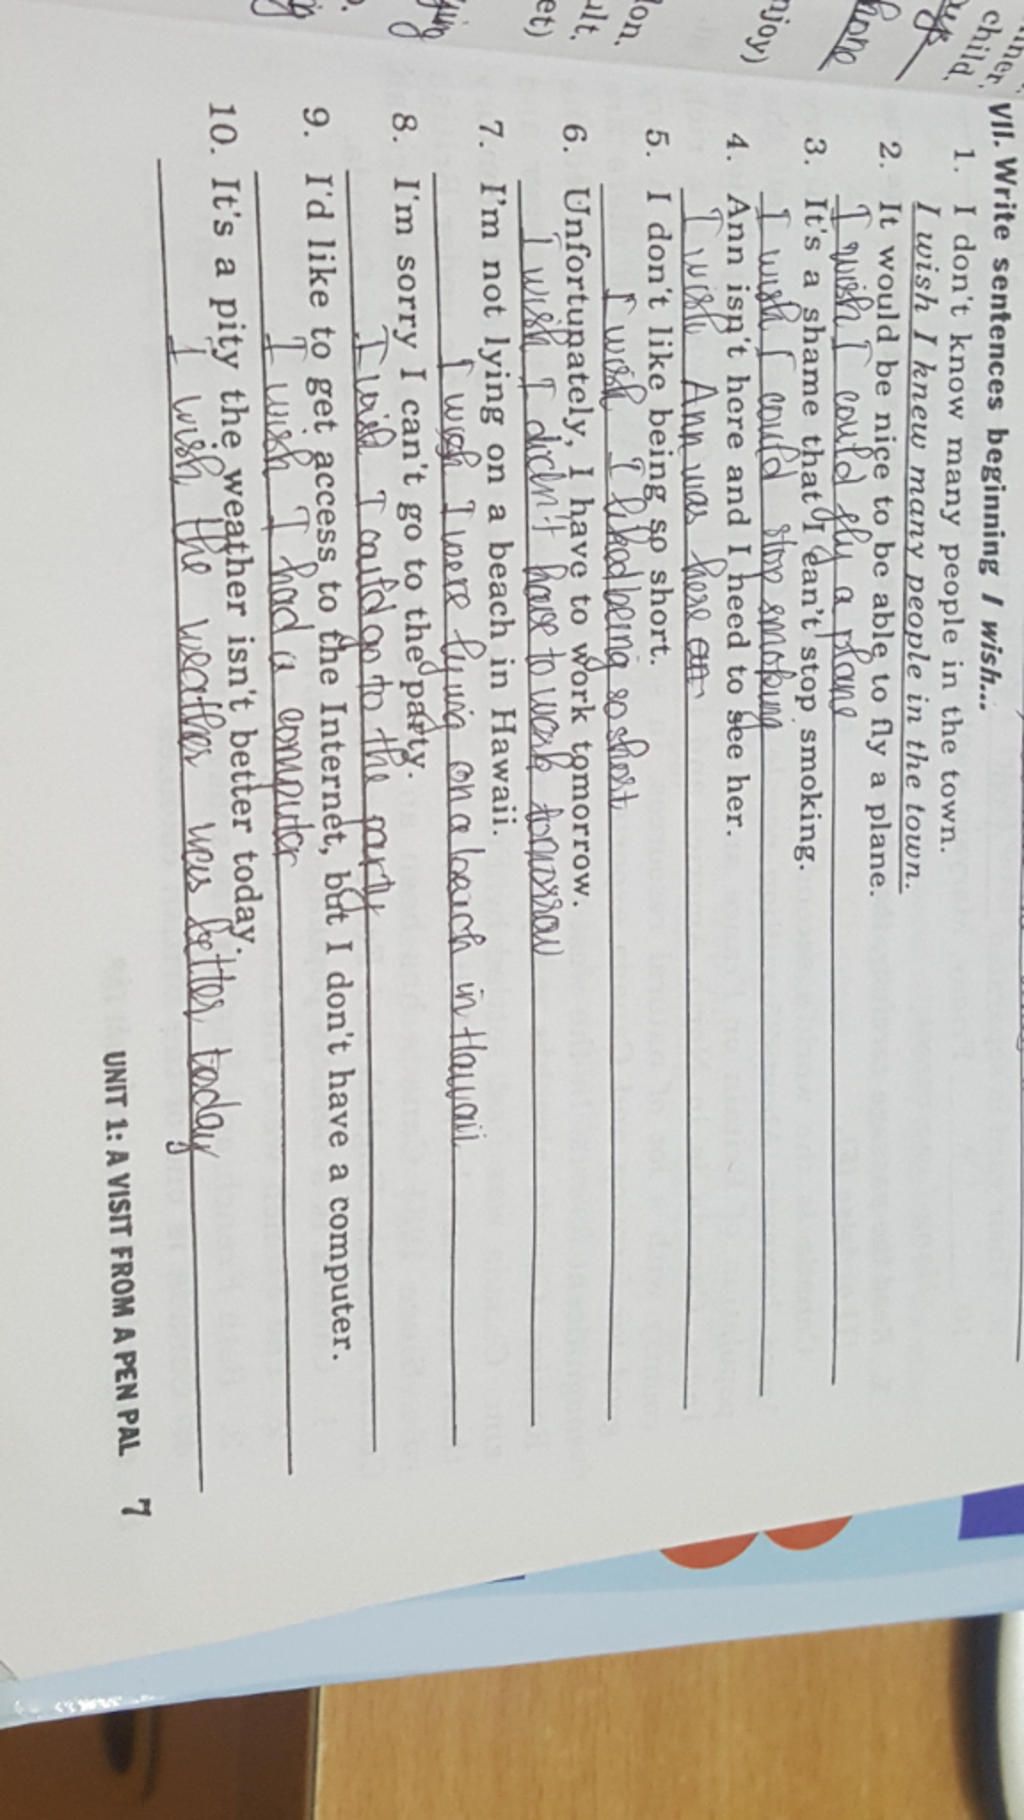 child.
phone
njoy)
on.
ult.
et)
VII. Write sentences beginning I wish...
1. I don't know many people in the town.
I wish I knew many people in the town.
2. It would be nice to be able to fly a plane.
I wish I could fly a plane
3. It's a shame that I can't stop smoking.
I wish I could stop smoking
4. Ann isn't here and I need to see her.
I wish Ann was here
5. I don't like being so short.
I wish I liked being so short
6. Unfortunately, I have to work tomorrow.
I wish I didn't have to work tomorrow
7. I'm not lying on a beach in Hawaii.
I wish I were lying on a beach in Hawaii
8. I'm sorry I can't go to the party.
I wish I could go to the party
9. I'd like to get access to the Internet, but I don't have a computer.
I wish I had a computer
10. It's a pity the weather isn't better today.
I wish the weather was better today
UNIT 1: A VISIT FROM A PEN PAL 7